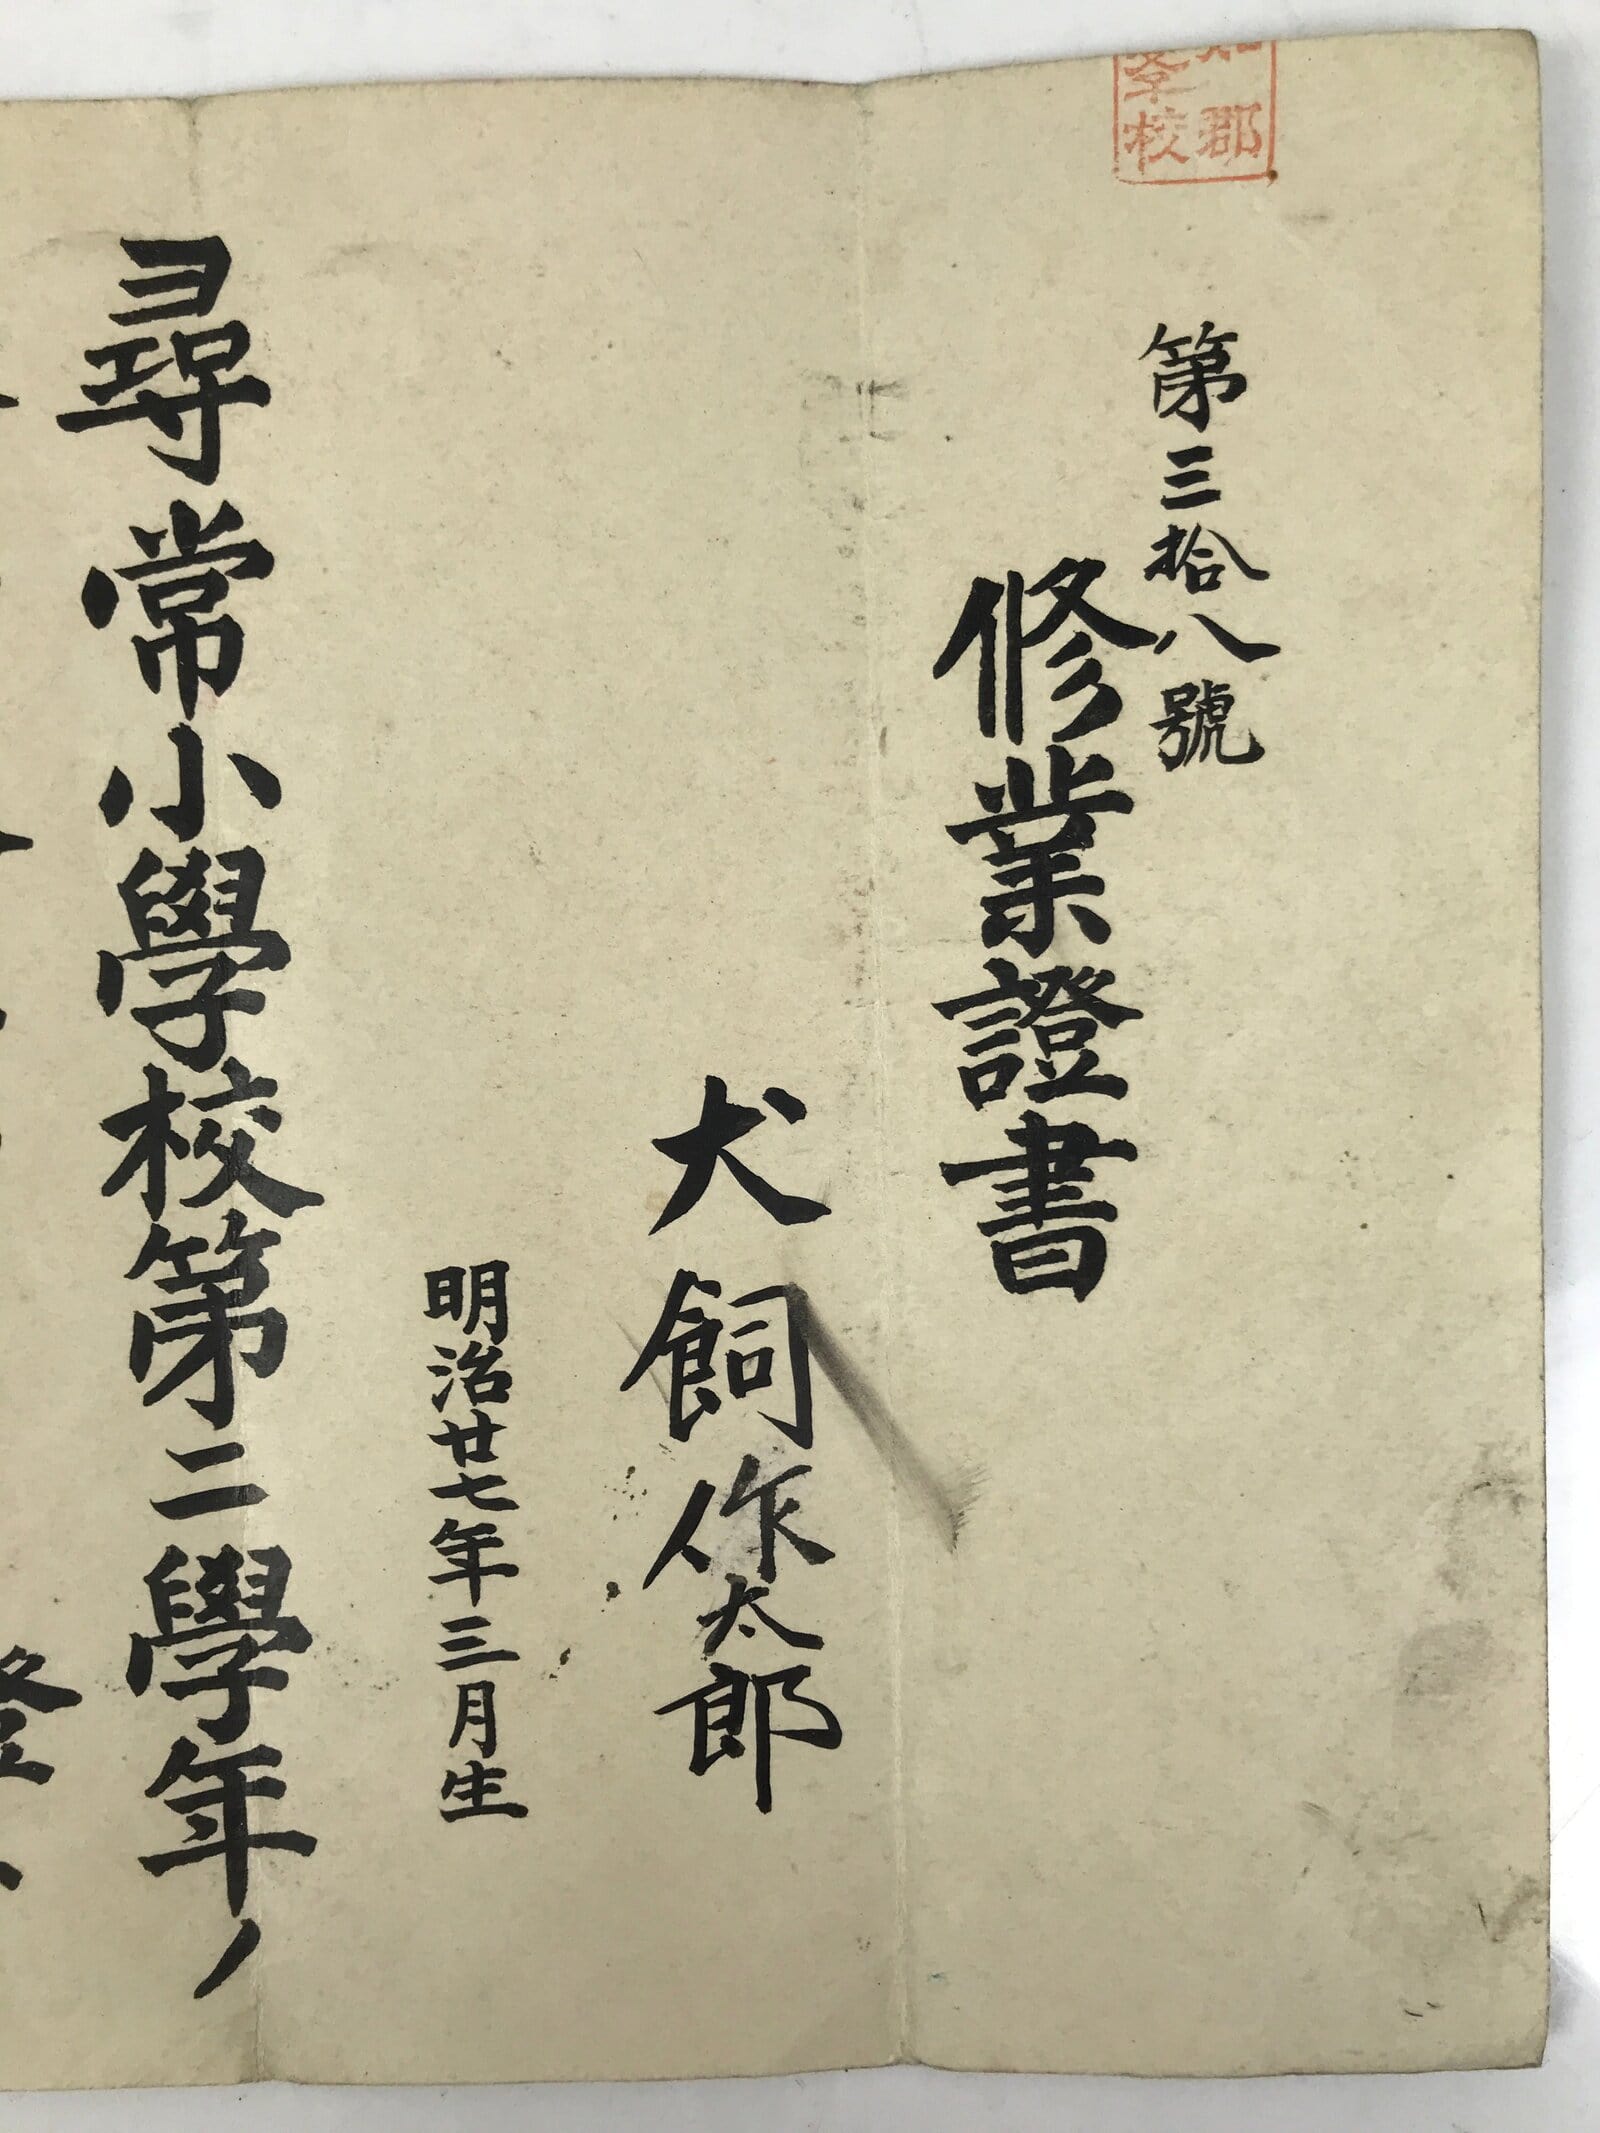 郡
校
第三拾八號
修業證書
犬飼作太郎
明治廿七年三月生
尋常小學校第二學年ノ